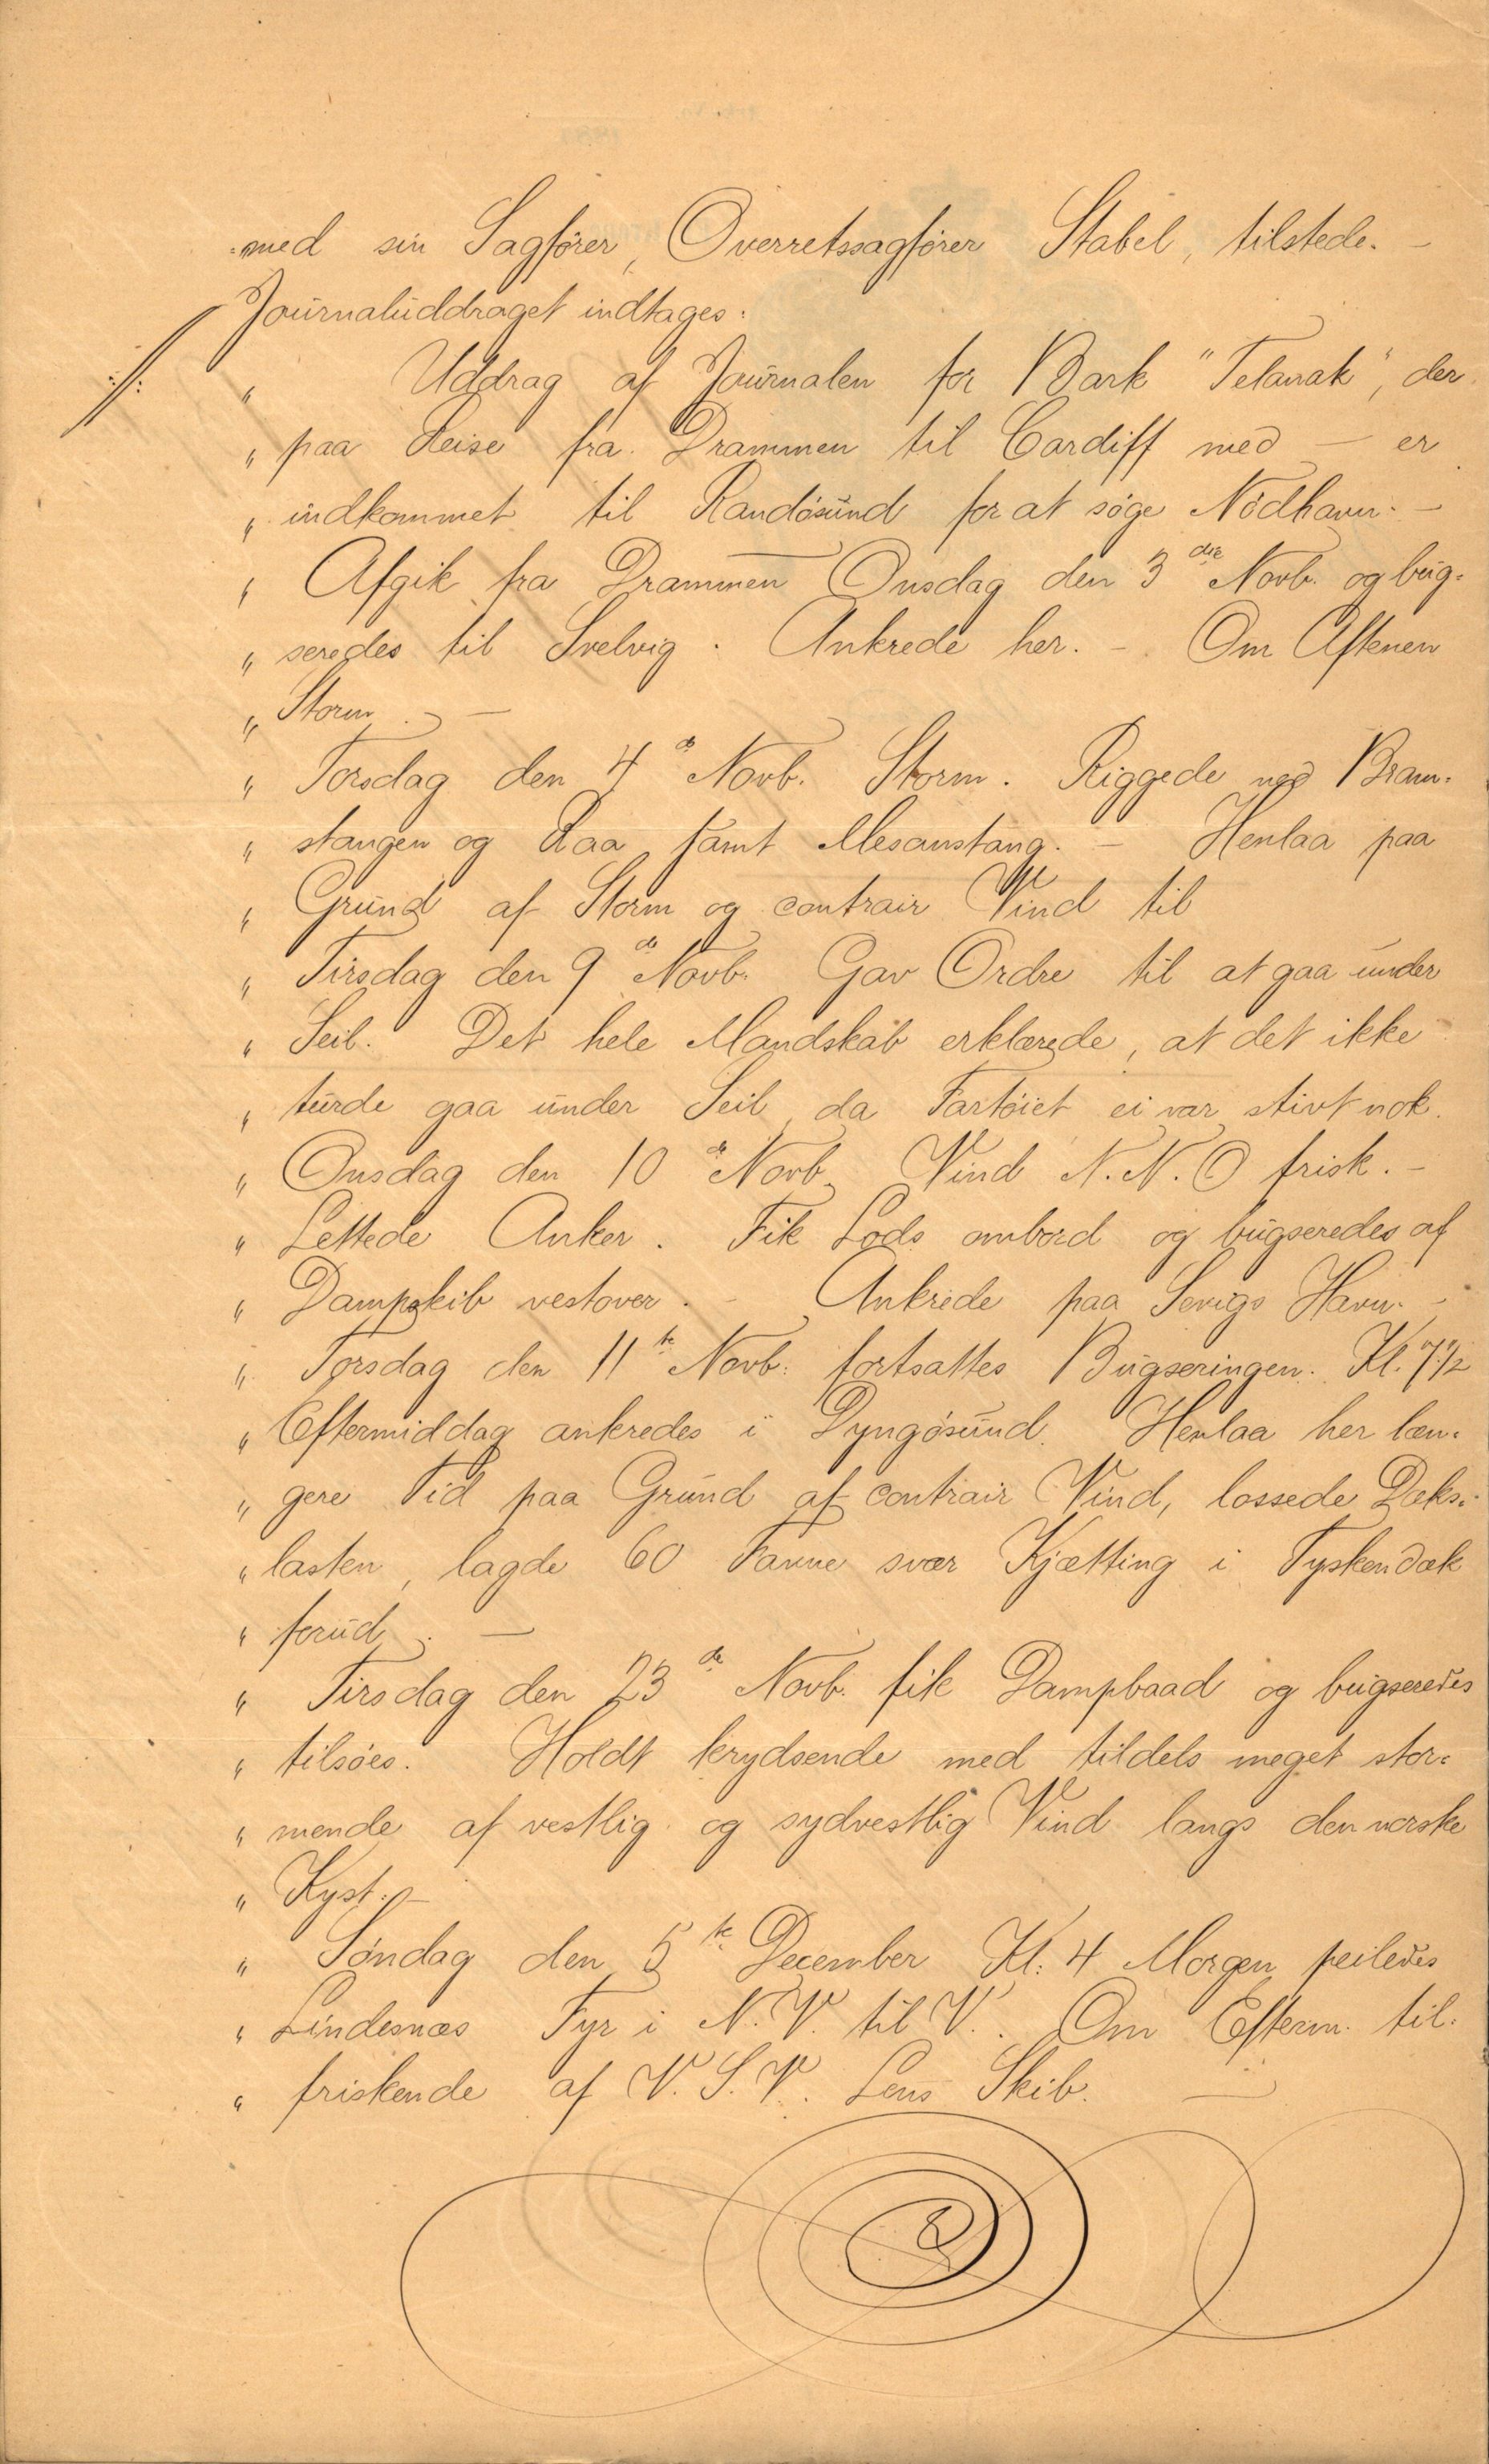 med sin Sagfører, Overretssagfører Stabel, tilstede. –
Journaluddraget indtages:
" Uddrag af Journalen for Bark "Telanak", der
" paa Reise fra Drammen til Cardiff med – er
" indkommet til Randøsund for at søge Nødhavn. –
" Afgik fra Drammen Onsdag den 3die Novb. og bug-
" seredes til Svelvig. Ankrede her. – Om Aftenen
" Storm. –
" Torsdag den 4de Novb. Storm. Riggede ned Bram-
" stangen og Raa samt Mesanstang. – Henlaa paa
" Grund af Storm og contrair Vind til
" Tirsdag den 9de Novb. Gav Ordre til at gaa under
" Seil. Det hele Mandskab erklærede, at det ikke
" turde gaa under Seil, da Fartøiet ei var stivt nok.
" Onsdag den 10de Novb. Vind N.N.O frisk. –
" Lettede Anker. Fik Lods ombord og bugseredes af
" Dampskib vestover. – Ankrede paa Sevigs Havn. –
" Torsdag den 11te Novb. fortsattes Bugseringen. Kl. 7 1/2
" Eftermiddag ankredes i Dyngøsund. Henlaa her læn-
" gere Tid paa Grund af contrair Vind, lossede Dæks-
" lasten, lagde 60 Favne svær Kjætting i Tyskendæk
" forud. –
" Tirsdag den 23de Novb. fik Dampbaad og bugseredes
" tilsøes. Holdt krydsende med tildels meget stor-
" mende af vestlig og sydvestlig Vind langs den norske
" Kyst. –
" Søndag den 5te December Kl. 4 Morgen peiledes
" Lindesnæs Fyr i N.V. til V. Om Efterm. til-
" friskende af V.S.V. Lens Skib. –